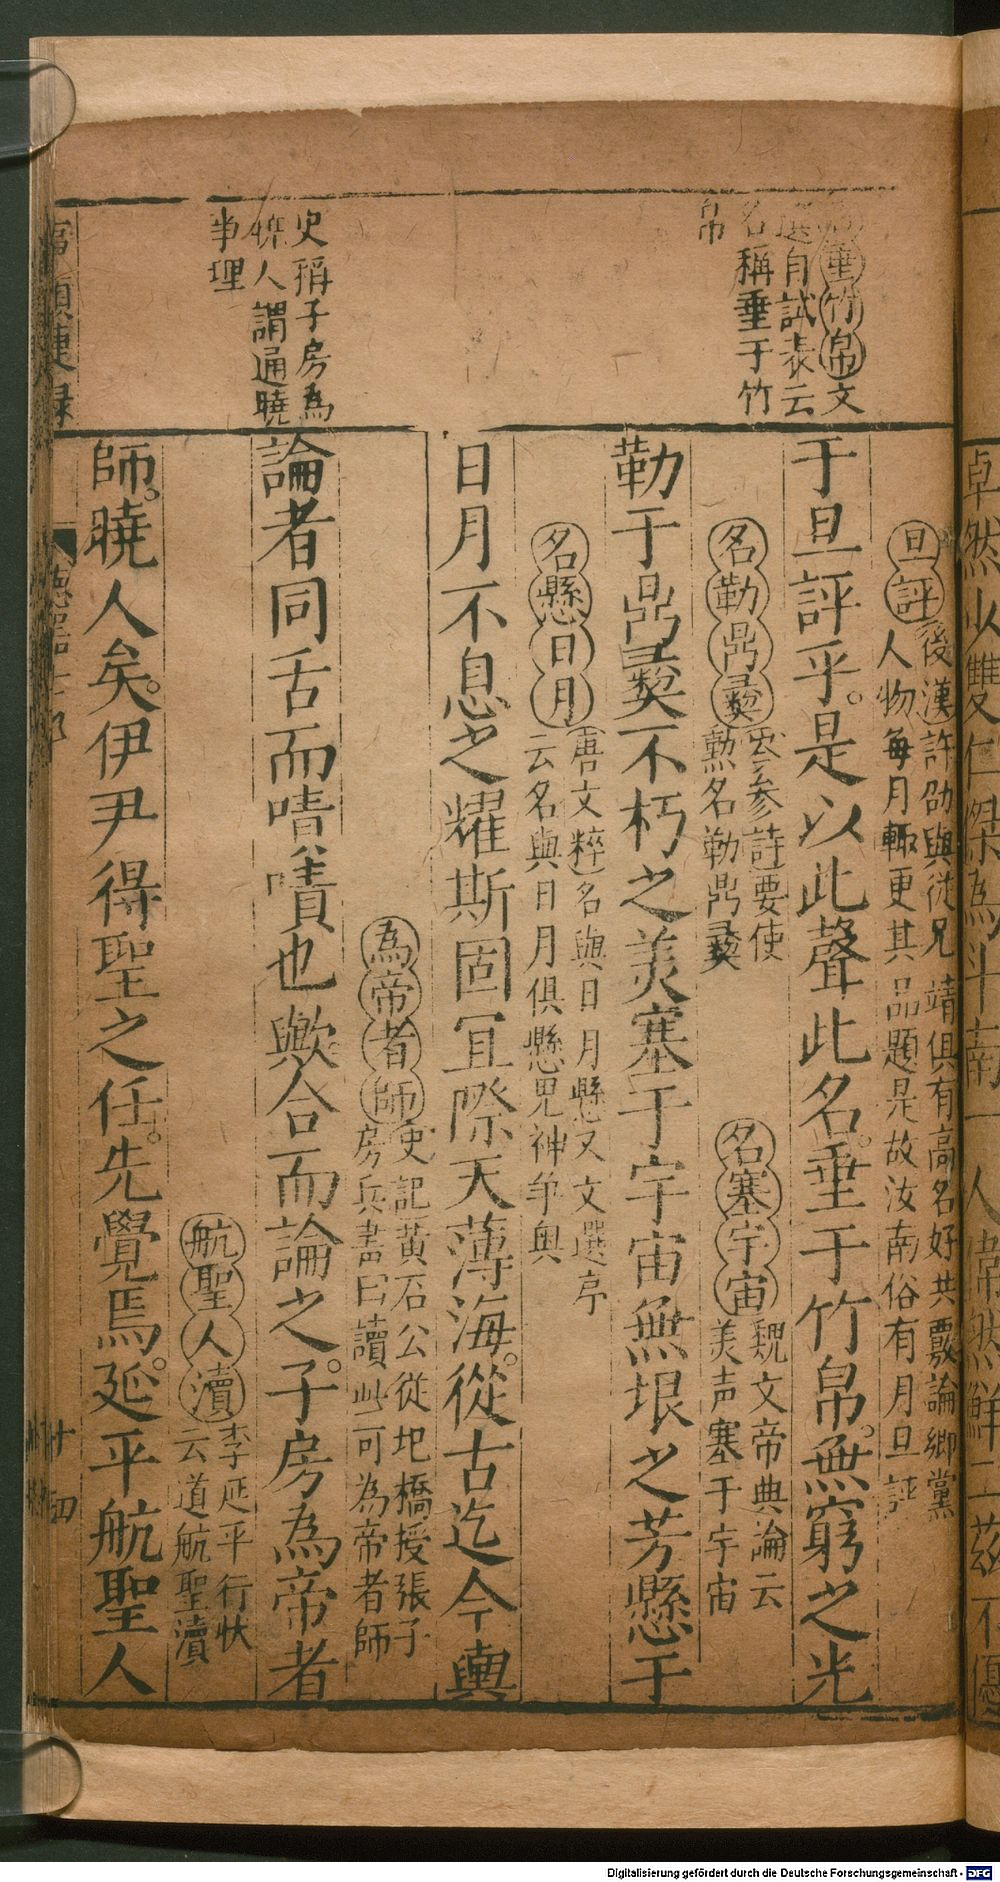 卓然以雙仁傑為斗南一人偉然鮮二茲不優
名垂竹帛文
選自試表云
名稱垂于竹
帛
旦評後漢許劭與從兄靖俱有高名好共覈論鄉黨
人物每月輒更其品題是故汝南俗有月旦評
于旦評乎。是以此聲此名。垂于竹帛。無窮之光
名勒鼎彝岑參詩要使
勲名勒鼎彝
名塞宇宙魏文帝典論云
美声塞于宇宙
勒于鼎彝不朽之美塞于宇宙無垠之芳懸于
名懸日月唐文粹名與日月懸又文選序
云名與日月俱懸鬼神争奥
日月不息之耀斯固宜際天薄海。從古迄今輿
為帝者師史記黃石公從圯橋授張子
房兵書曰讀此可為帝者師
史稱子房為
曉人謂通曉
事理
論者同舌而嘖嘖也歟。合而論之。子房為帝者
航聖人瀆李延平行狀
云道航聖瀆
師。曉人矣。伊尹得聖之任。先覺焉。延平航聖人